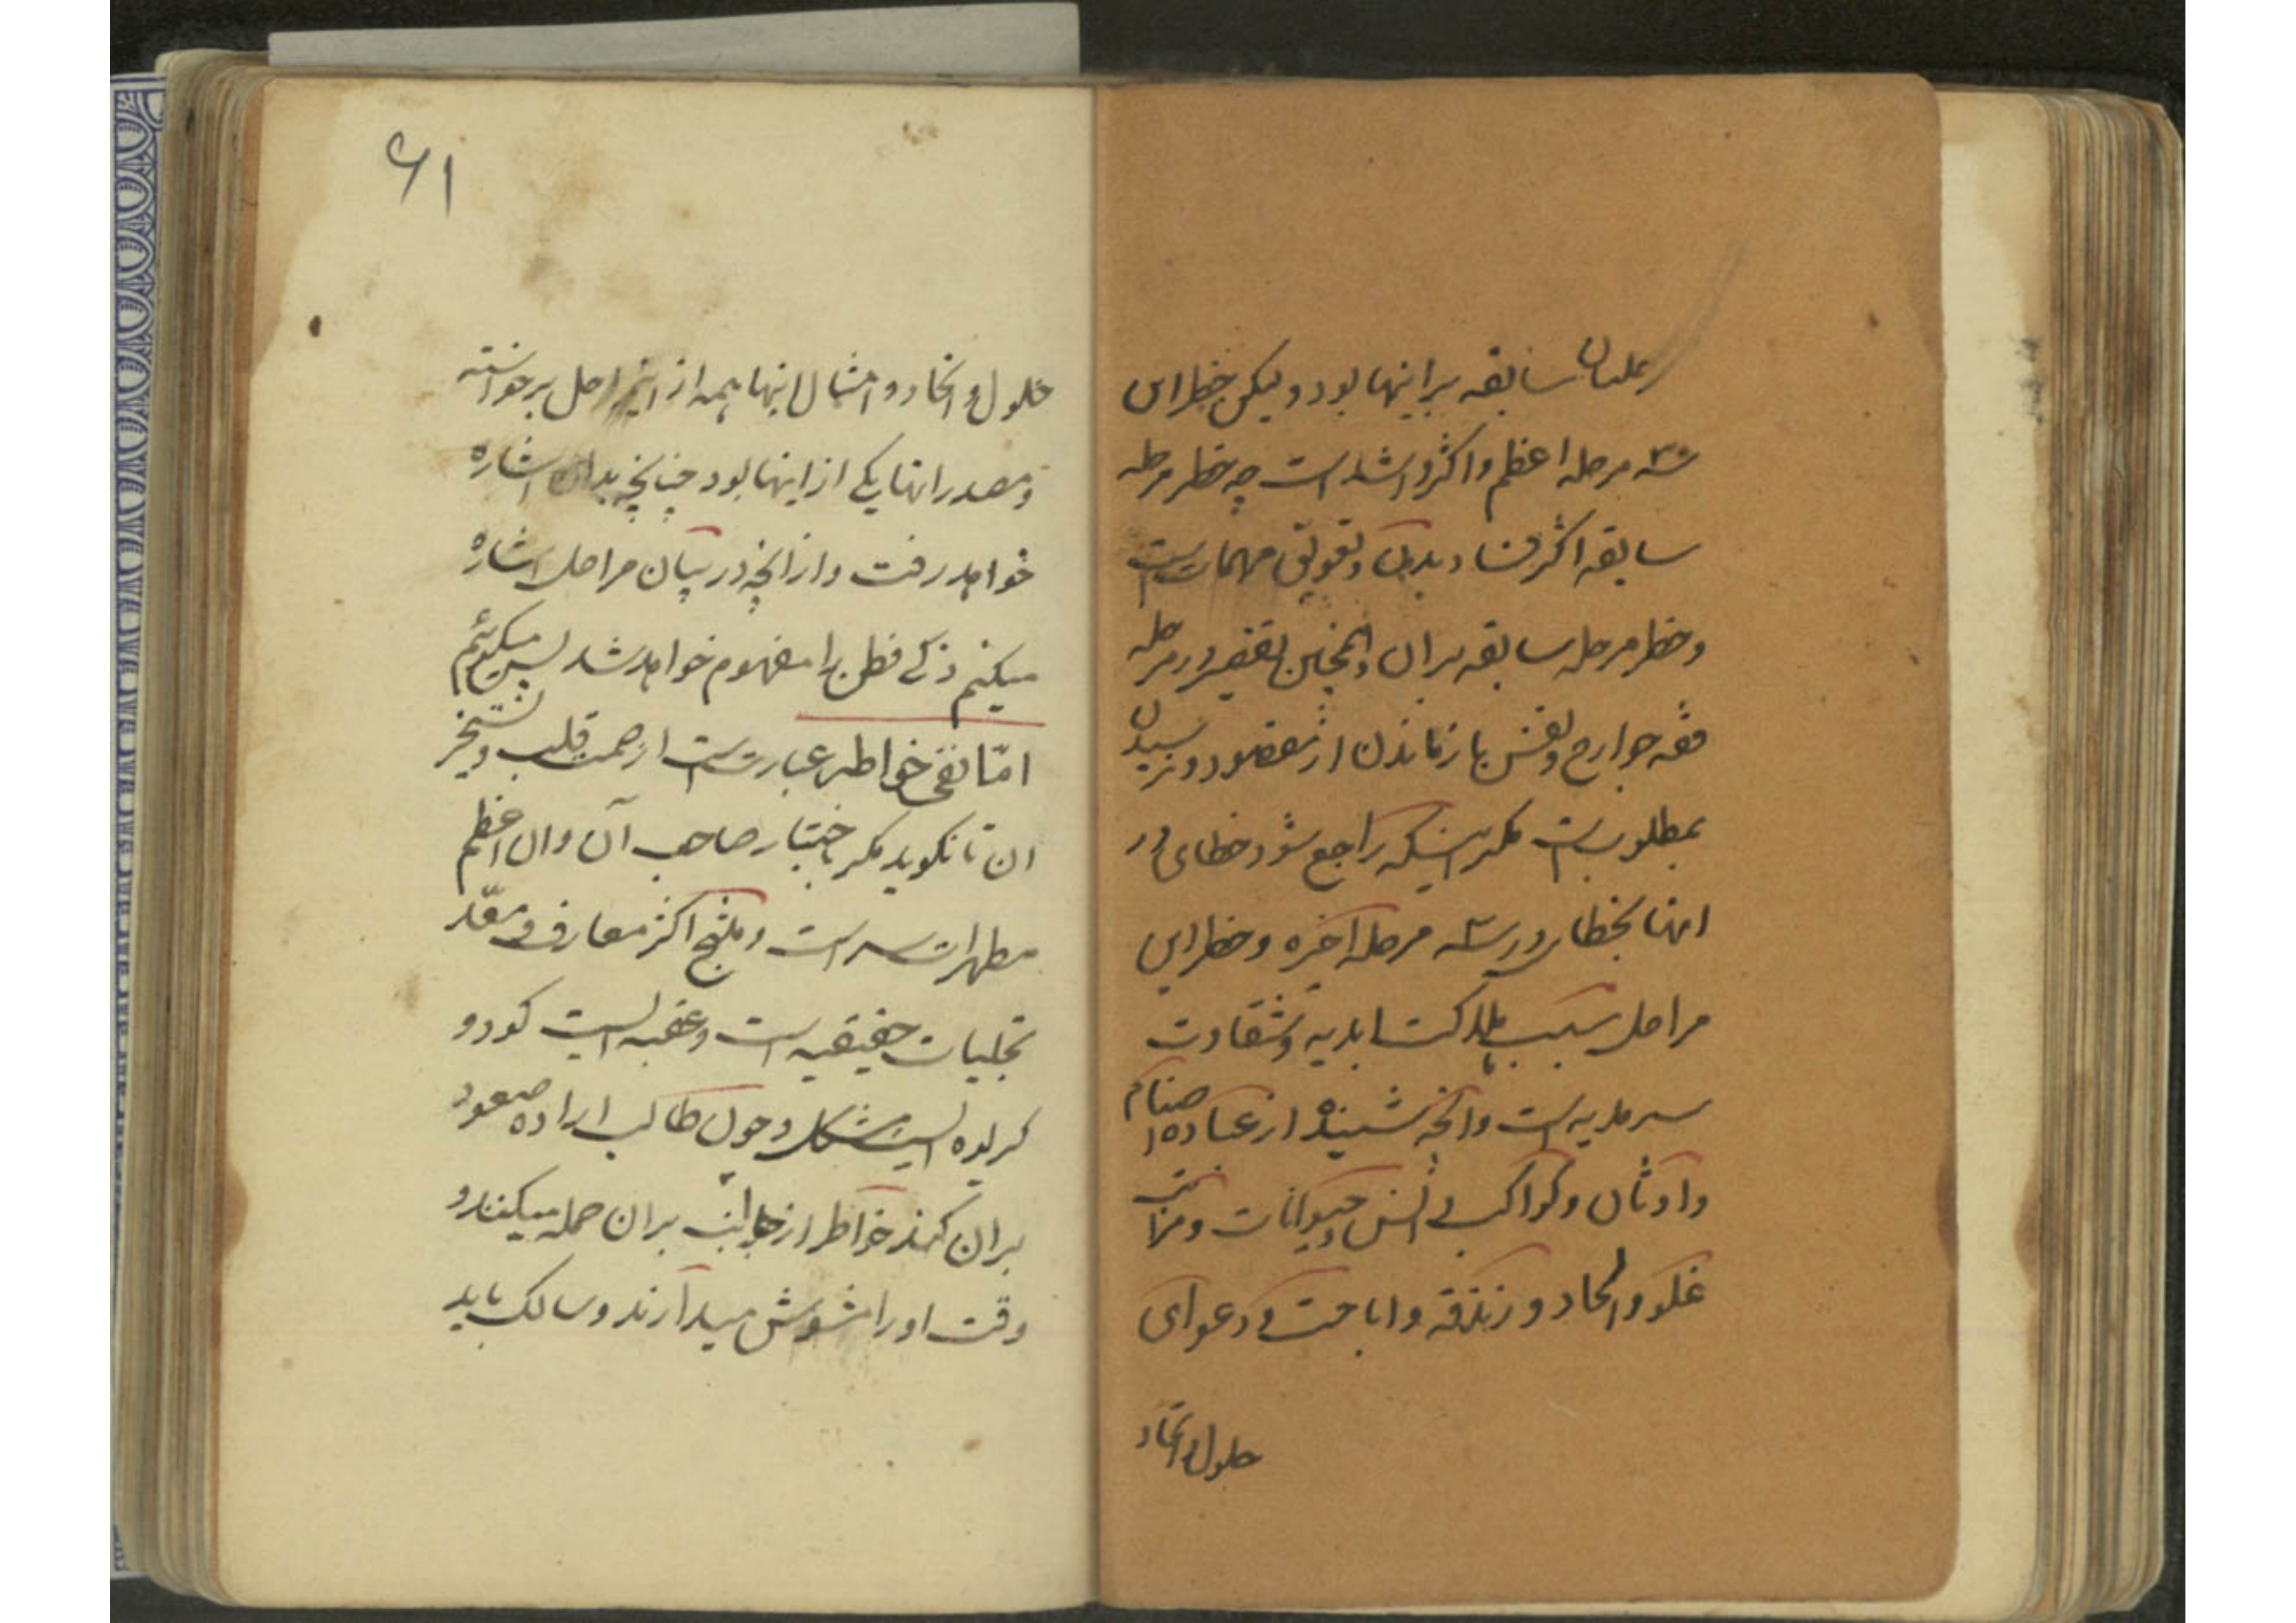 سابقه بر اینها بود ولیکن خطر این
سه مرحله اعظم و اکثر و اشد است چه خطر مرحله
سابقه اکثر فساد بدن و تعویق مهمات است
و خطر مرحله سابقه بر ان و همچنین تقصیر در مرحله
فقه جوارح و نفس بازماندن از مقصود و نرسیدن
بمطلوب است مگر اینکه راجع شود خطای در
انها بخطا در سه مرحله آخره و خطر این
مراحل سبب هلاکت ابدیه و شقاوت
سرمدیه است و آنچه شنیدهٔ از عباده اصنام
و اوثان و کواکب و آتش و حیوانات و مراتب
غلو و الحاد و زندقه و اباحت و دعوای
حلول و اتحاد
۶۱
حلول و اتحاد و امثال اینها همه از این مراحل برخواسته
و مصدر انها یکی از اینها بود چنانچه بدان اشاره
خواهد رفت و از آنچه در بیان مراحل اشاره
میکنم ذکی فطن را مفهوم خواهد شد پس میگوئیم
امّا نفی خواطر عبارتست از صمت قلب و تسخیر
ان تا نگوید مگر باختیار صاحب آن و ان اعظم
مطهرات سر است و منتج اکثر معارف و معدّ
تجلیات حقیقیه است و عقبه ایست کود و
کریوه ایست مشکل و چون طالب اراده صعود
بر ان کند خواطر از جوانب بر ان حمله میکنند و
وقت او را مشوش میدارند و سالک باید